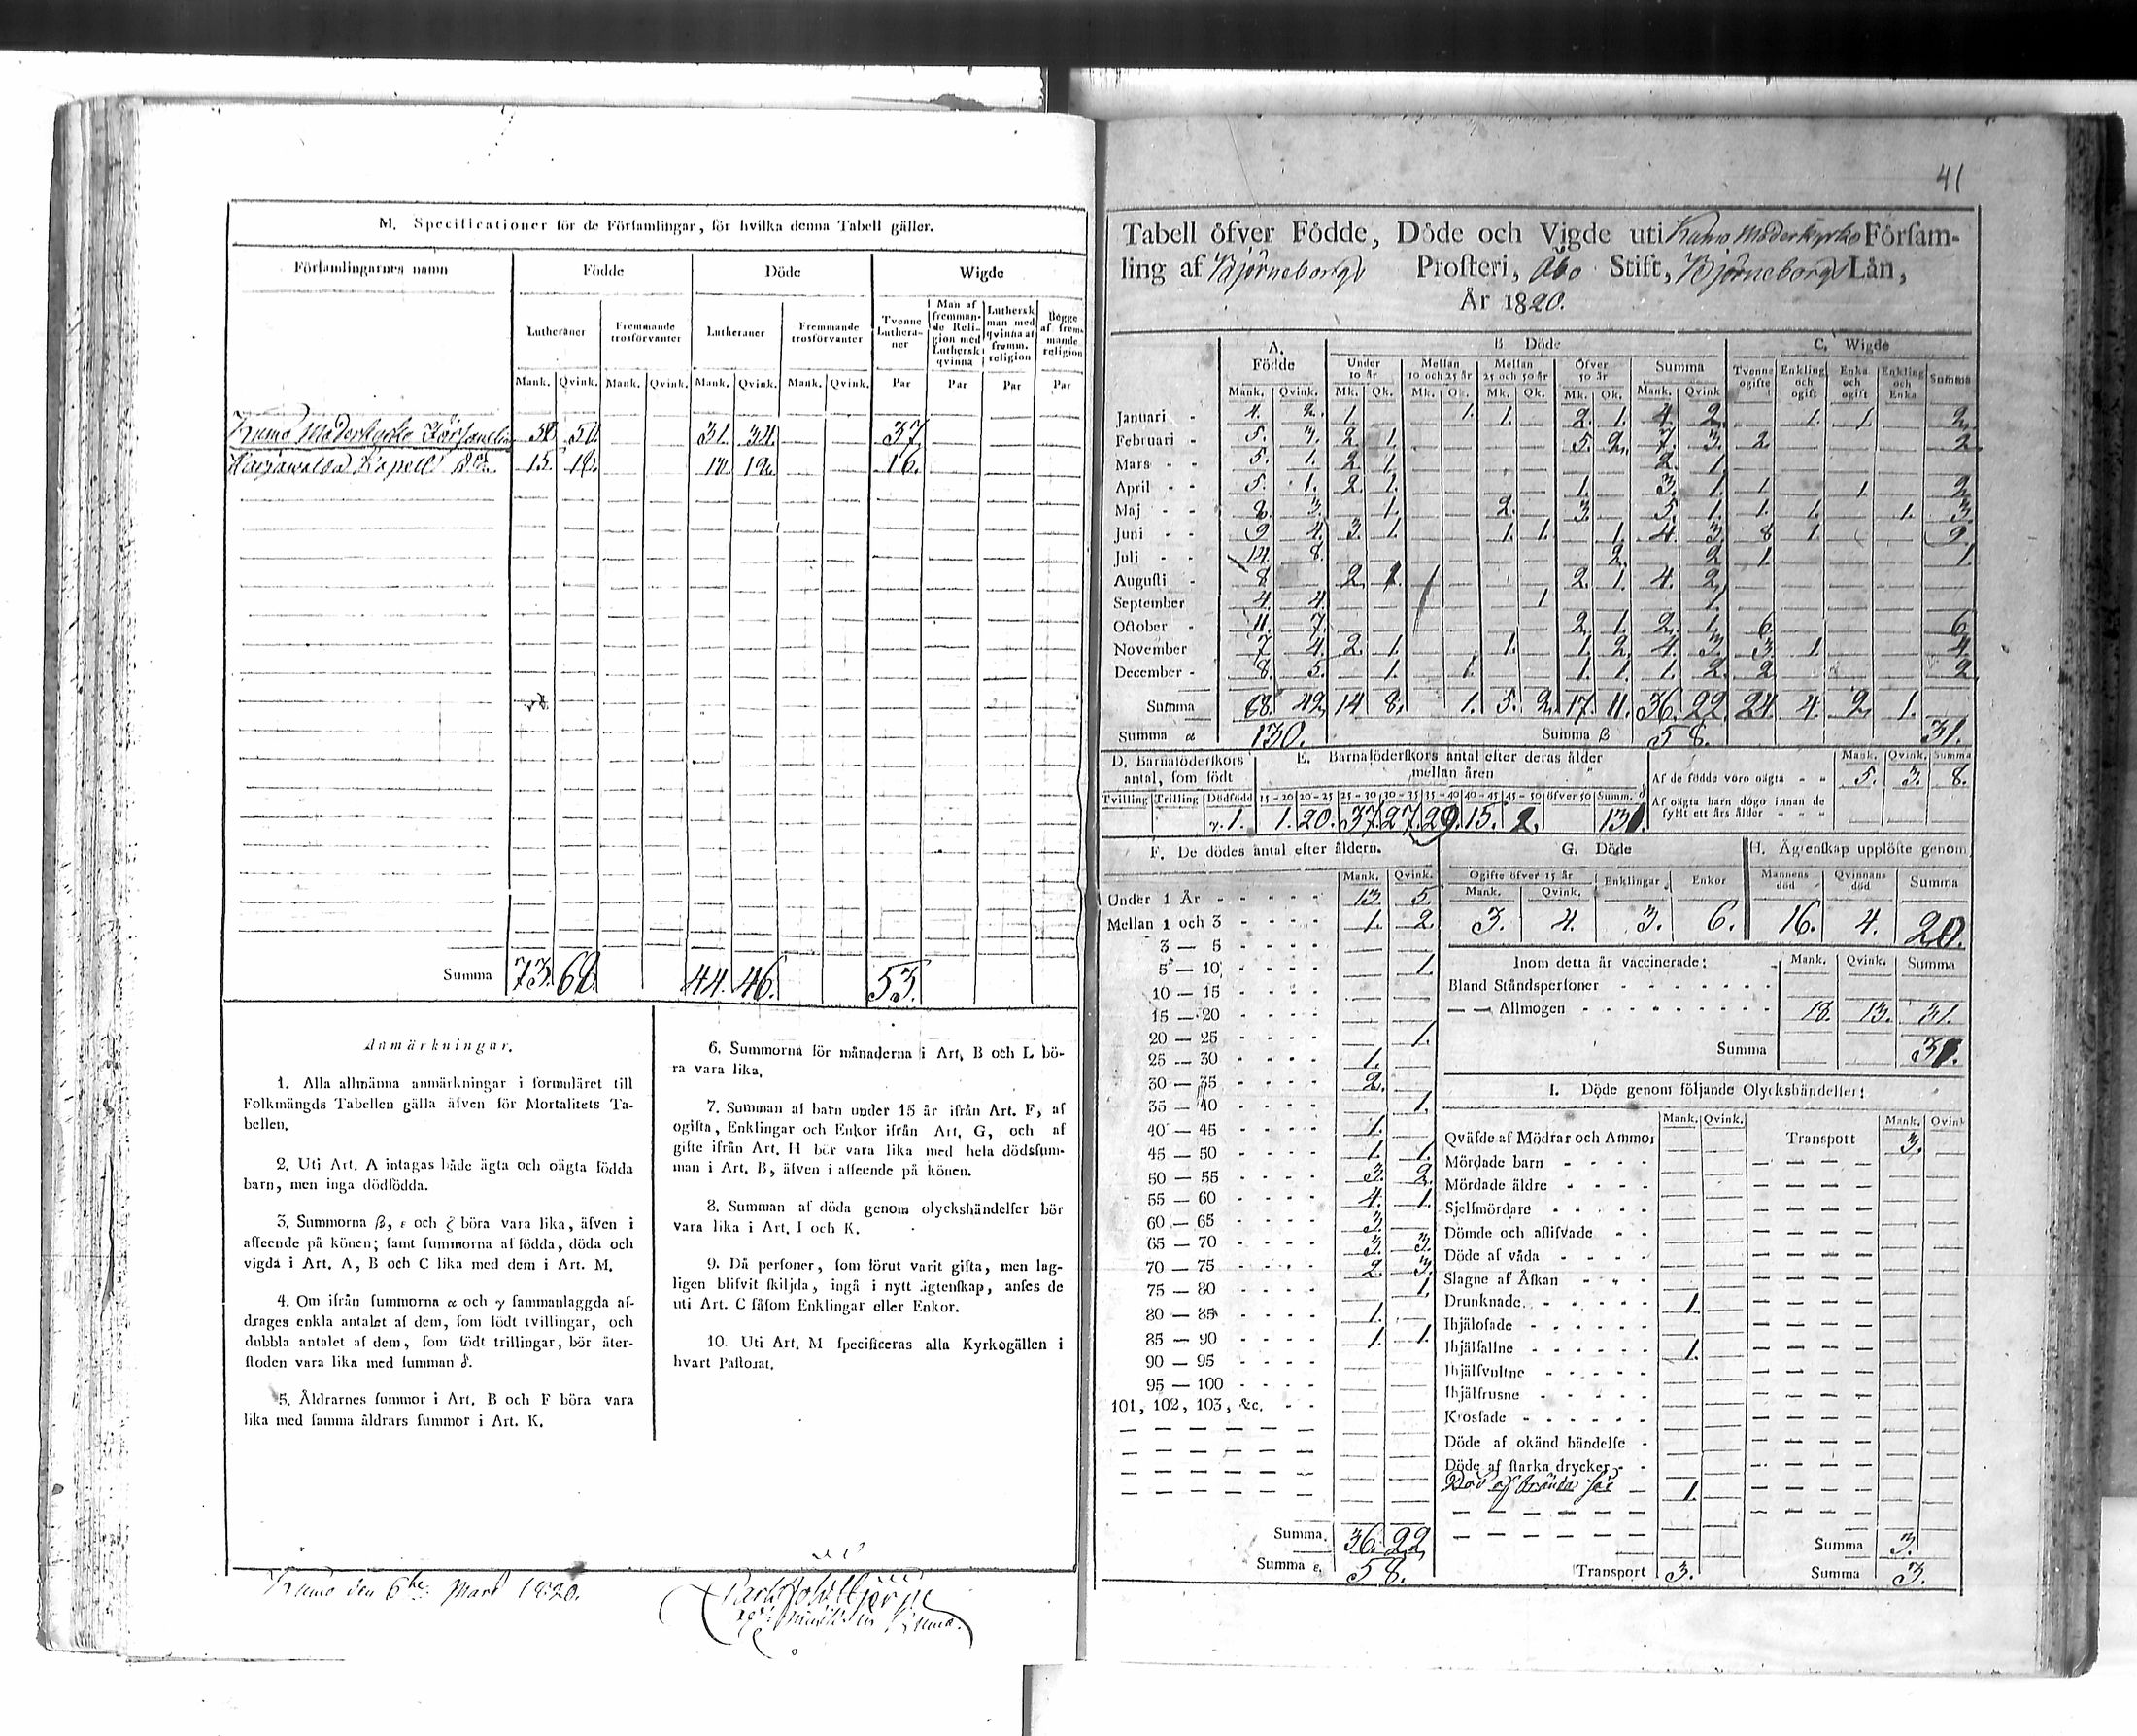 M. Specificationer för de Församlingar, för hvilka denna Tabell gäller.
Församlingarnes namn Födde Döde Wigde
Lutheraner Fremmande trosförvanter Lutheraner Fremmande trosförvanter Tvenne Lutheraner Man af fremmande Religion med Luthersk qvinna Luthersk man med qvinna af fremm. religion Begge af fremmande religion
Mank. Qvink. Mank. Qvink. Mank. Qvink. Mank. Qvink. Par Par Par Par
Kumo Moderkyrko Församling 58 50. 31. 34. 37
Kapell 15. 18. 12. 16.
Summa 73. 68. 44. 46. 53.
Anmärkningar.
1. Alla allmänna anmärkningar i formuläret till
Folkmängds Tabellen gälla äfven för Mortalitets Ta-
bellen.
2. Uti Art. A intagas både ägta och oägta födda
barn, men inga dödfödda.
3. Summorna β, ε och ζ böra vara lika, äfven i
afseende på könen; samt summorna af födda, döda och
vigda i Art. A, B och C lika med dem i Art. M.
4. Om ifrån summorna α och γ sammanlaggda af-
drages enkla antalet af dem, som födt tvillingar, och
dubbla antalet af dem, som födt trillingar, bör åter-
stoden vara lika med summan δ.
5. Åldrarnes summor i Art. B och F böra vara
lika med samma åldrars summor i Art. K.
6. Summorna för månaderna i Art. B och L bö-
ra vara lika.
7. Summan af barn under 15 år ifrån Art. F, af
ogifta, Enklingar och Enkor ifrån Art. G, och af
gifte ifrån Art. H bör vara lika med hela dödssum-
man i Art. B, äfven i afseende på könen.
8. Summan af döda genom olyckshändelser bör
vara lika i Art. I och K.
9. Då personer, som förut varit gifta, men lag-
ligen blifvit skiljda, ingå i nytt ägtenskap, anses de
uti Art. C såsom Enklingar eller Enkor.
10. Uti Art. M specificeras alla Kyrkogällen i
hvart Pastorat.
Kumo den 6te Mars 1820.
41
Tabell öfver Födde, Döde och Vigde uti Kumo Moderkyrko Försam-
ling af Björneborgs Prosteri, Åbo Stift, Björneborgs Län,
År 1820.
A. Födde B Döde C. Wigde
Under 10 år Mellan 10 och 25 år Mellan 25 och 50 år Öfver 50 år Summa Tvenne ogifte Enkling och ogift Enka och ogift Enkling och Enka Summa
Mank. Qvink. Mk. Qk. Mk. Qk. Mk. Qk. Mk. Qk. Mank. Qvink
Januari - 4. 2. 1. 1. 1. 2. 1. 4 2. 1. 1. 2.
Februari - 5. 3. 2. 1. 5. 2. 7. 3. 2. 2.
Mars - - 5. 1. 2. 1. 2. 1.
April - - 5. 1. 2. 1. 1. 3. 1. 1. 1. 2.
Maj - - 8. 3. 1. 2. 3. 5. 1. 1. 1. 1. 3.
Juni - - 9 4. 3. 1. 1. 1. 1. 4 3 8 1. 9.
Juli - - 14. 8. 2. 2 1. 1.
Augusti - 8. 2. 1. 1 2. 1. 4. 2.
September 4. 4. 1 1.
October - 11. 7. 2. 1. 2. 1. 6. 6.
November 7 4. 2. 1. 1. 1. 2. 4. 3. 3. 1. 4.
December - 8. 5. 1. 1. 1. 1. 1. 2. 2. 2.
Summa 88. 42. 14 8. 1. 5. 2. 17. 11. 36. 22. 24. 4. 2. 1.
Summa α 130. Summa β 58. 31.
D. Barnaföderskors antal, som födt E. Barnaföderskors antal efter deras ålder mellan åren
Tvilling Trilling Dödfödd 15-20 20-25 25-30 30-35 35-40 40-45 45-50 öfver 50 Summ. δ
γ. 1. 1. 20. 37. 27. 29. 15. 2. 131.
Mank. Qvink. Summa
Af de födde voro oägta - - 5. 3. 8.
Af oägta barn dogo innan de
fyllt ett års ålder - - -
F. De dödes antal efter åldern.
Mank. Qvink.
Under 1 År - 13. 5.
Mellan 1 och 3 - 1. 2.
3 — 5
5 — 10 1.
10 — 15
15 — 20
20 — 25 1.
25 — 30 1.
30 — 35 2.
35 — 40 1.
40 — 45 1.
45 — 50 1. 1.
50 — 55 3. 2.
55 — 60 4. 1.
60 — 65 3.
65 — 70 3. 3.
70 — 75 2. 3.
75 — 80 1.
80 — 85 1.
85 — 90 1. 1.
90 — 95
95 — 100
101, 102, 103, &c.
Summa. 36. 22
Summa ε. 58.
G. Döde
Ogifte öfver 15 år Enklingar Enkor
Mank. Qvink.
3. 4. 3. 6.
H. Ägtenskap upplöste genom
Mannens död Qvinnans död Summa
16. 4. 20.
Inom detta år vaccinerade: Mank. Qvink. Summa
Bland Ståndspersoner
— — Allmogen 18. 13. 31.
Summa 31.
I. Döde genom följande Olyckshändelser:
Mank. Qvink. Mank. Qvink
Qväfde af Mödrar och Ammor Transport 3.
Mördade barn
Mördade äldre
Sjelfmördare
Dömde och aflifvade
Döde af våda
Slagne af Åskan
Drunknade 1.
Ihjälosade
Ihjälfallne 1.
Ihjälsvultne
Ihjälfrusne
Krossade
Döde af okänd händelse
Döde af starka drycker
Död af brända sår 1.
Summa 3.
Transport 3. Summa 3.